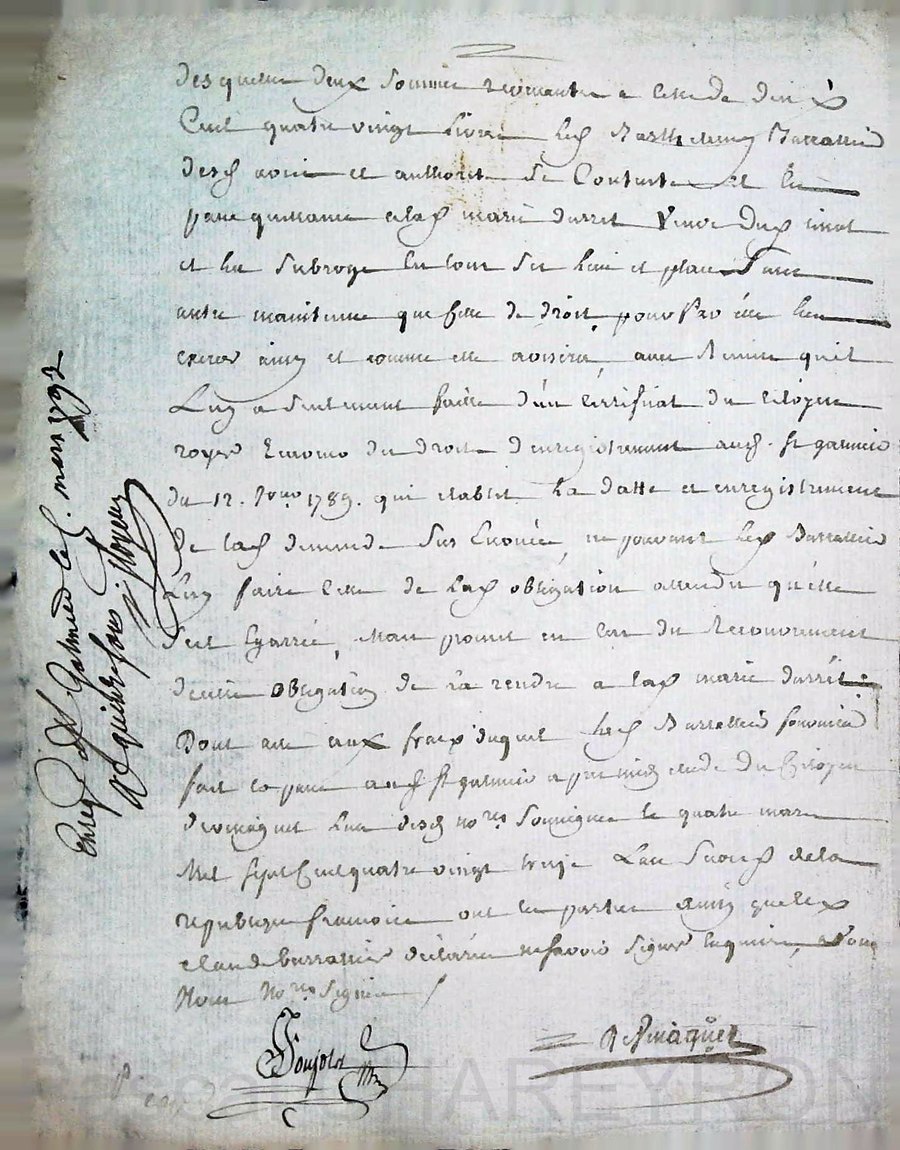 desquelles deux sommes revenantes a celle de deux
Cent quatre vingt livres led Barthelemy Barrallier
desd avoir et authorité se Contente et en
passe quittance a lad marie durret veuve dud
et la subroge en tout ses lieu et place sans
autre maintenue que celle de droit pour par elle
exercer ainsy et comme elle avisera, avec remise qu'il
Luy a seulement faitte d'un Certifficat du Citoyen
royer du droit d'enregistrement aud. st galmier
du 12. 1789. qui etablit La datte et enregistrement
de lad demande sus Enoncée, ne pouvant led Barrallier
Luy faire celle de lad obligation attendu qu'elle
s'est Egarrée, Mais promet en cas du Recouvrement
d'icelle obligation de la rendre a lad marie durret
Dont acte aux fraix duquel led Barrallier
fait et passé aud st galmier etude du Citoyen
desmaguet l'un desd no.res soussignés le quatre mars
Mil sept Cent quatre vingt treize L'an second de la
republique francoise ont les parties
claude barrallier déclaré ne scavoir signer Enquis,
Nous No.res signé
Poujolat No.re
Desmaguet
enreg a St Galmier le . mars 1793
R quinze sous Royer
CHAREYRON